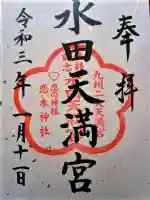 奉拝
九州二大天満宮
水田天満宮
恋の神様
恋木神社
令和三年一月十一日